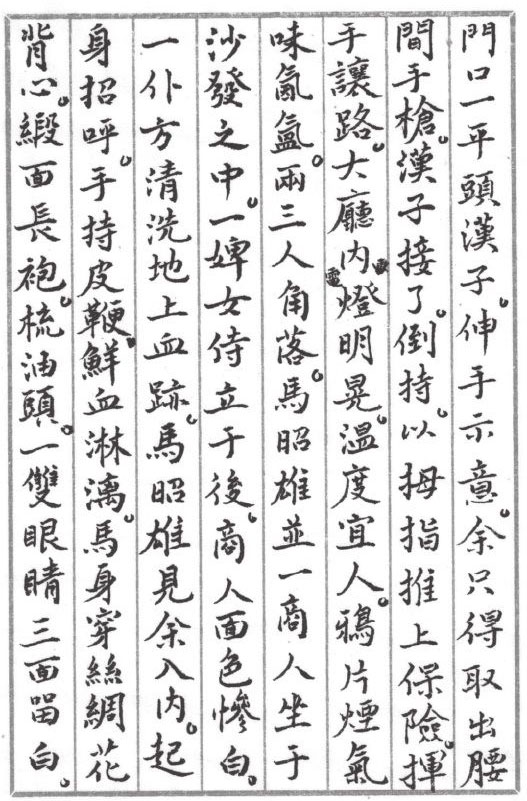 門口一平頭漢子。伸手示意。余只得取出腰
間手槍。漢子接了。倒持。以拇指推上保險。揮
手讓路。大廳內電燈明晃。溫度宜人。鴉片煙氣
味氤氳。兩三人角落。馬昭雄並一商人坐于
沙發之中。一婢女侍立于後。商人面色慘白。
一仆方清洗地上血跡。馬昭雄見余入內。起
身招呼。手持皮鞭。鮮血淋漓。馬身穿絲綢花
背心。緞面長袍。梳油頭。一雙眼睛三面留白。